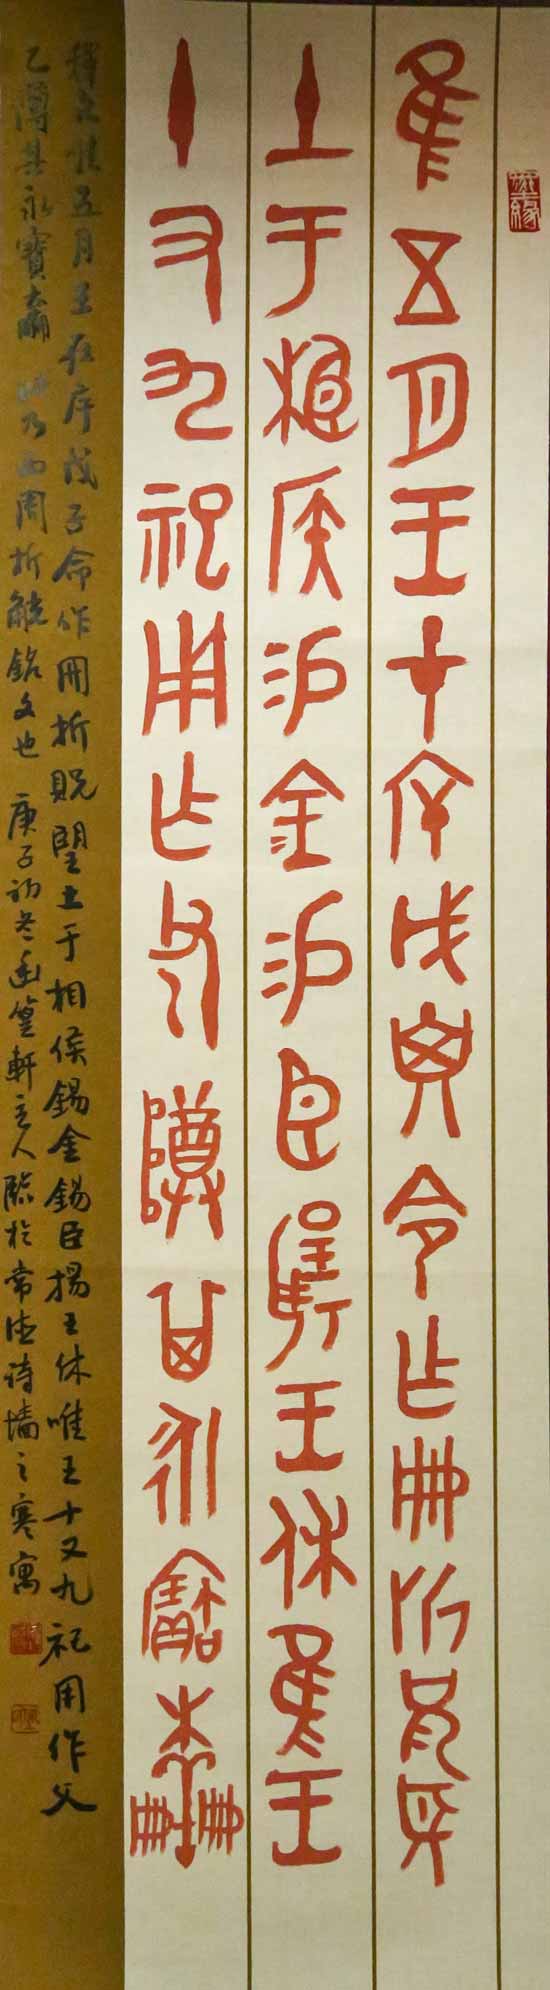 隹五月王才斥戊子令乍冊折兄望
土于相侯易金易臣揚王休隹王
十又九祀用乍父乙尊甘永寶
释文惟五月王在庠戊子命作冊折貺望土于相侯錫金錫臣揚王休唯王十又九祀用作父
乙尊其永寶 此乃西周折觥銘文也 庚子初冬篁軒主人臨於常德诗墙之寒寓